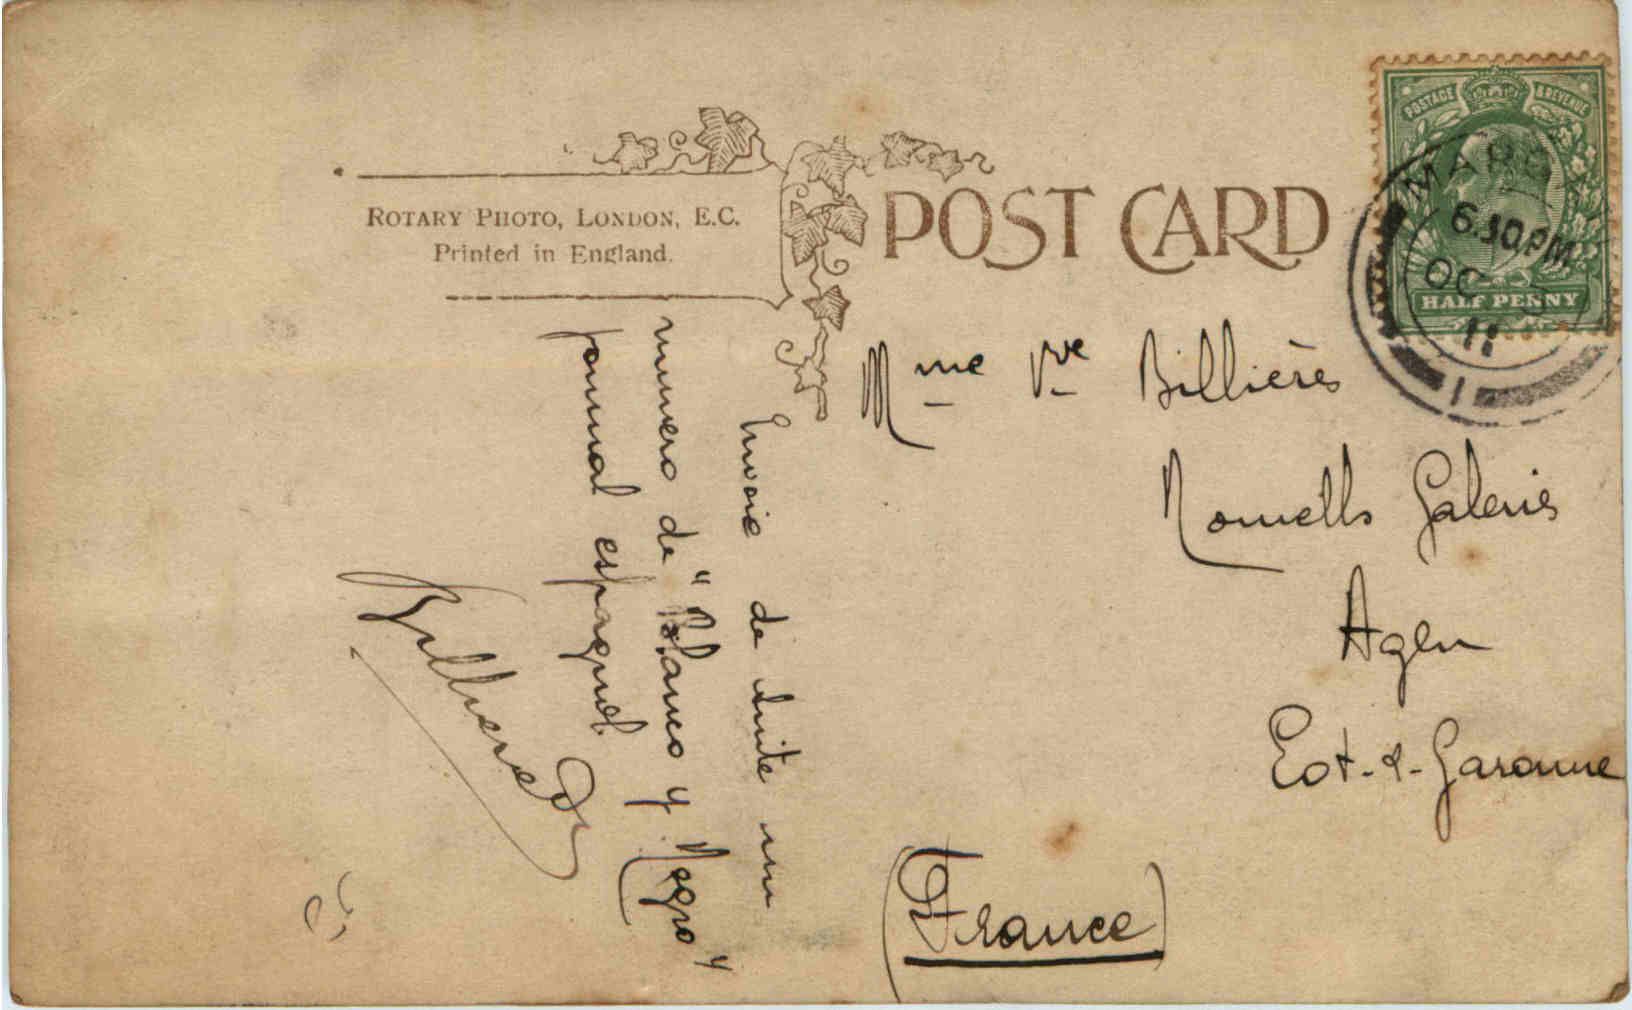 ROTARY PHOTO, LONDON, E.C.
Printed in England.
POST CARD
POSTAGE & REVENUE
HALF PENNY
6.30 PM
OC 5
11
1
Mme Vve Billières
Nouvelles Galeries
Agen
Lot-&-Garonne
(France)
Envoie de suite un
numero de "Blanco y Negro"
journal espagnol